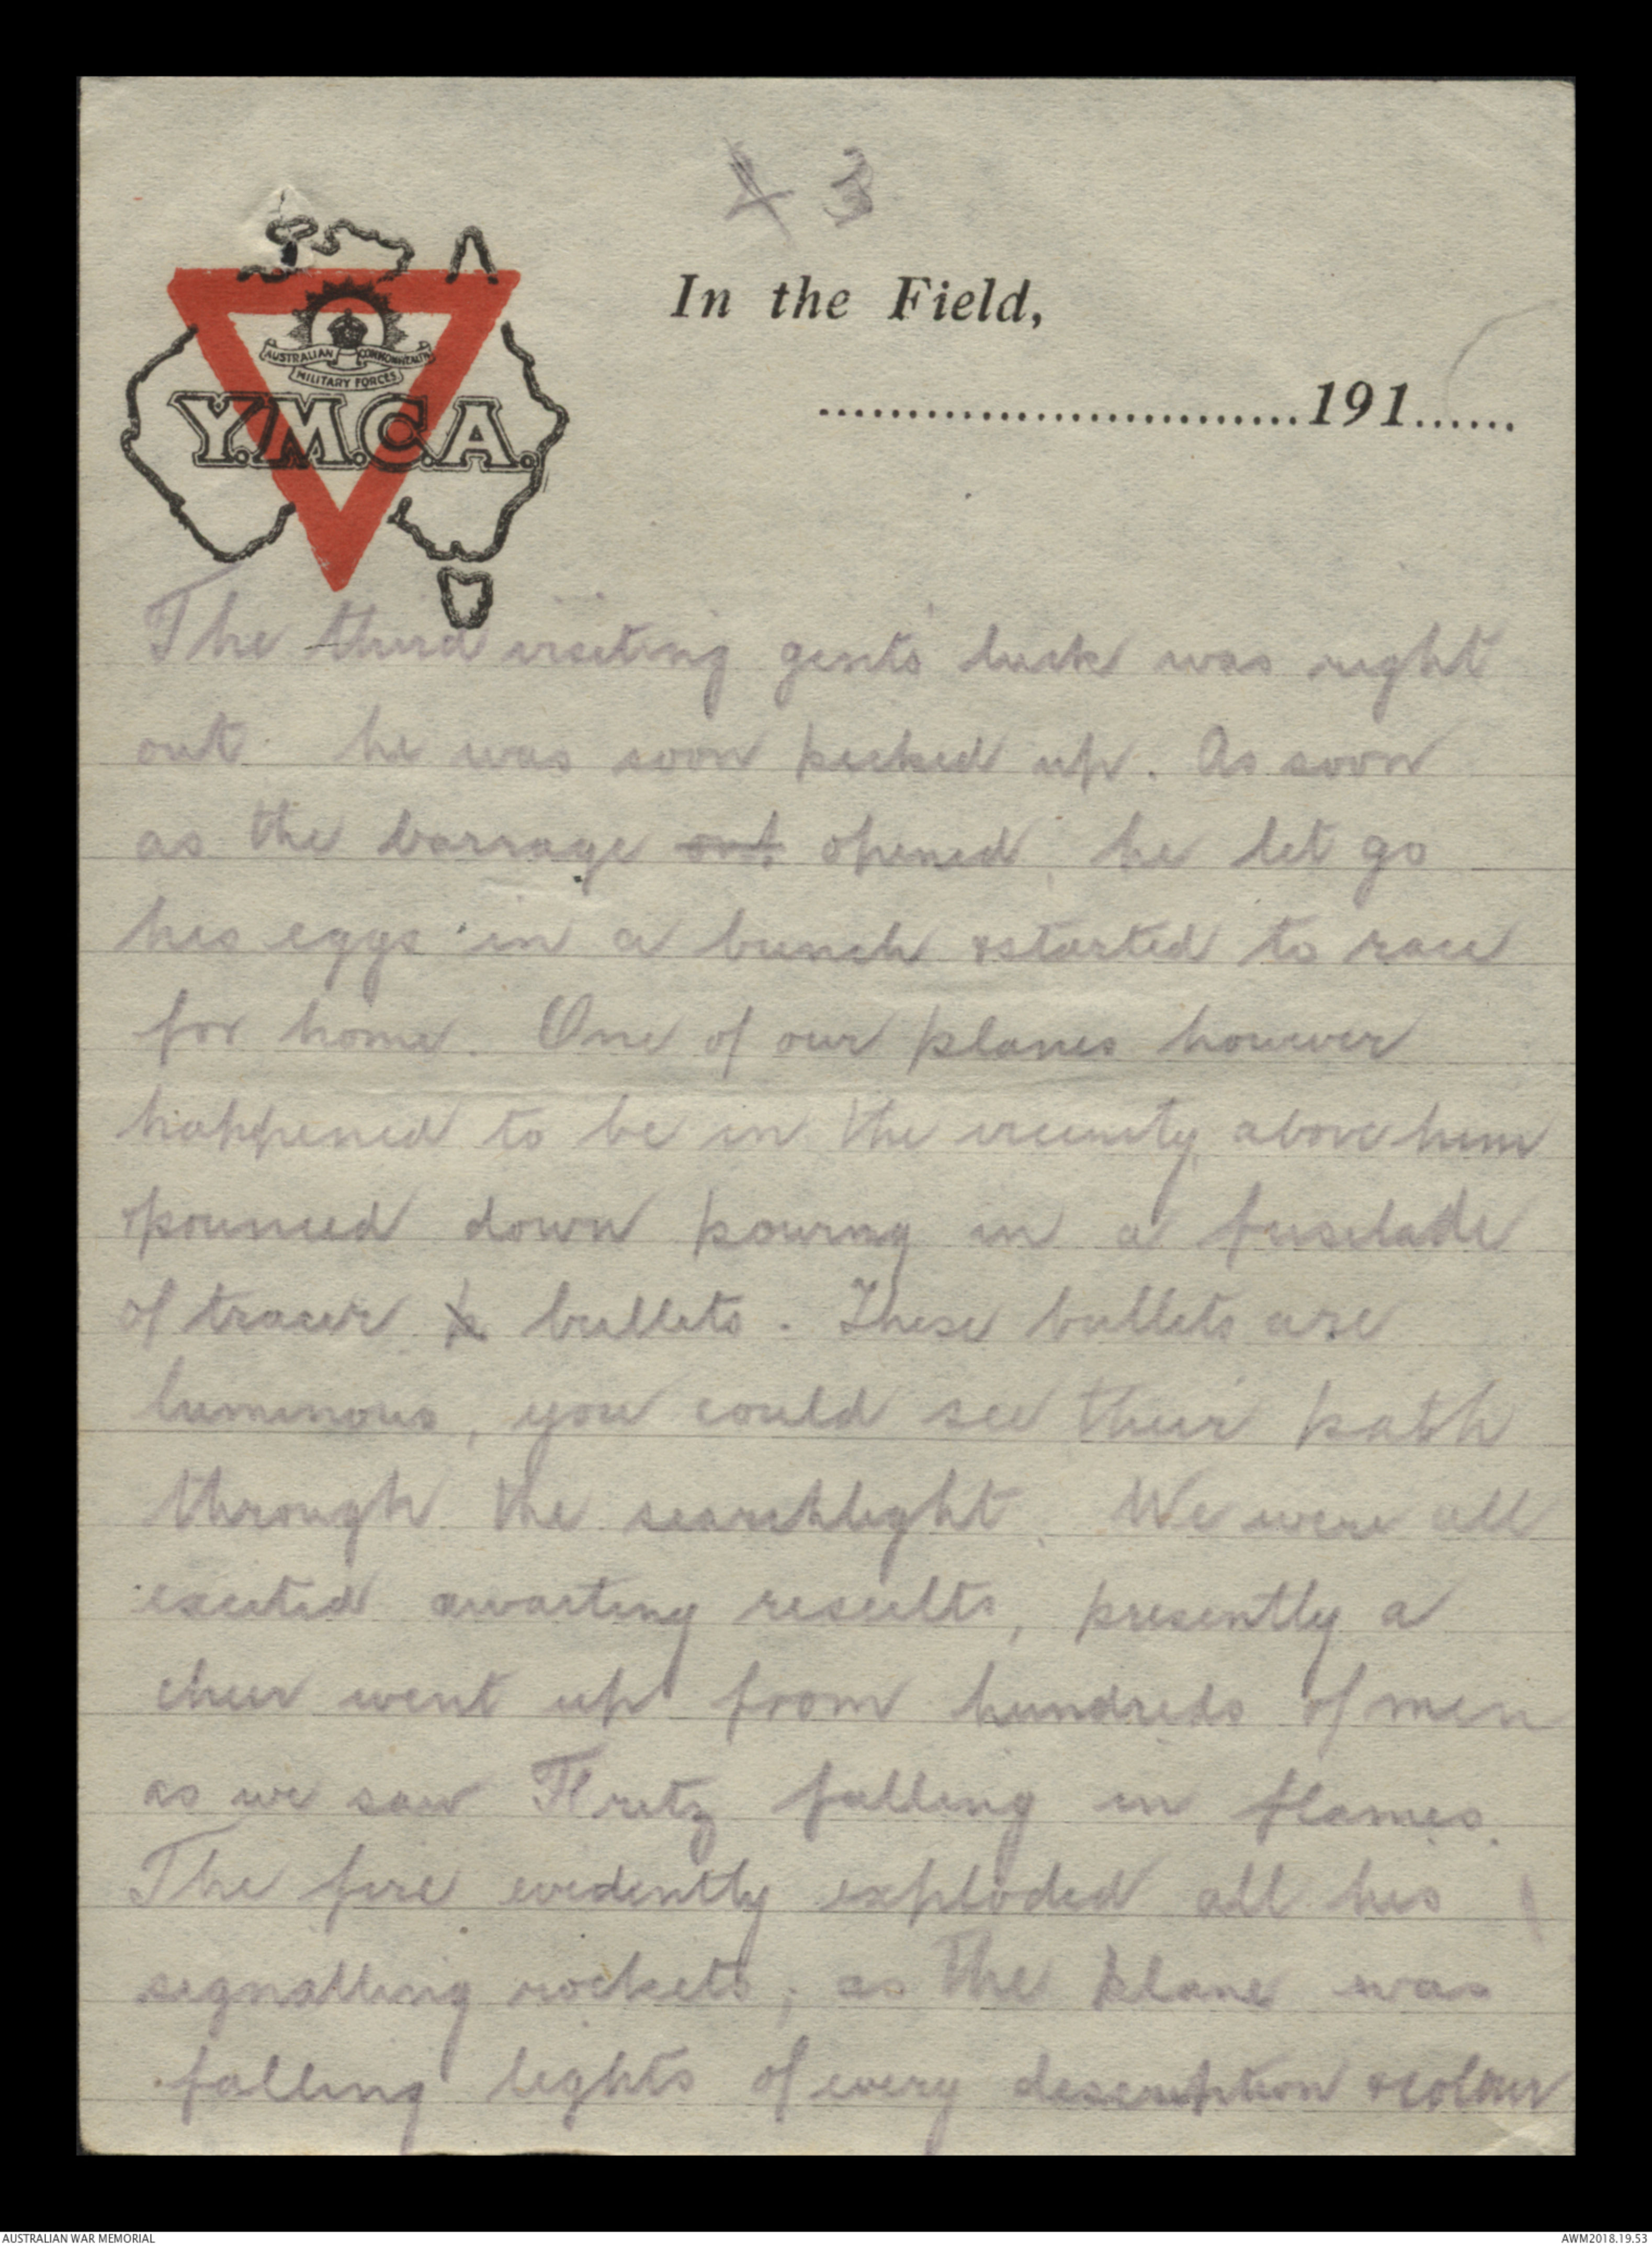 4 3
In the Field,
AUSTRALIAN COMMONWEALTH
MILITARY FORCES
Y.M.C.A.
............................191......
The third visiting gents luck was right
out he was soon picked up. As soon
as the barrage out opened, he let go
his eggs in a bunch & started to race
for home. One of our planes however
happened to be in the vicinity, above him
& pounced down pouring in a fusilade
of tracer b bullets. These bullets are
luminous, you could see their path
through the searchlight. We were all
excited awaiting results, presently a
cheer went up from hundreds of men
as we saw Fritz falling in flames.
The fire evidently exploded all his
signalling rockets, as the plane was
falling lights of every description & colour
AUSTRALIAN WAR MEMORIAL
AWM2018.19.53